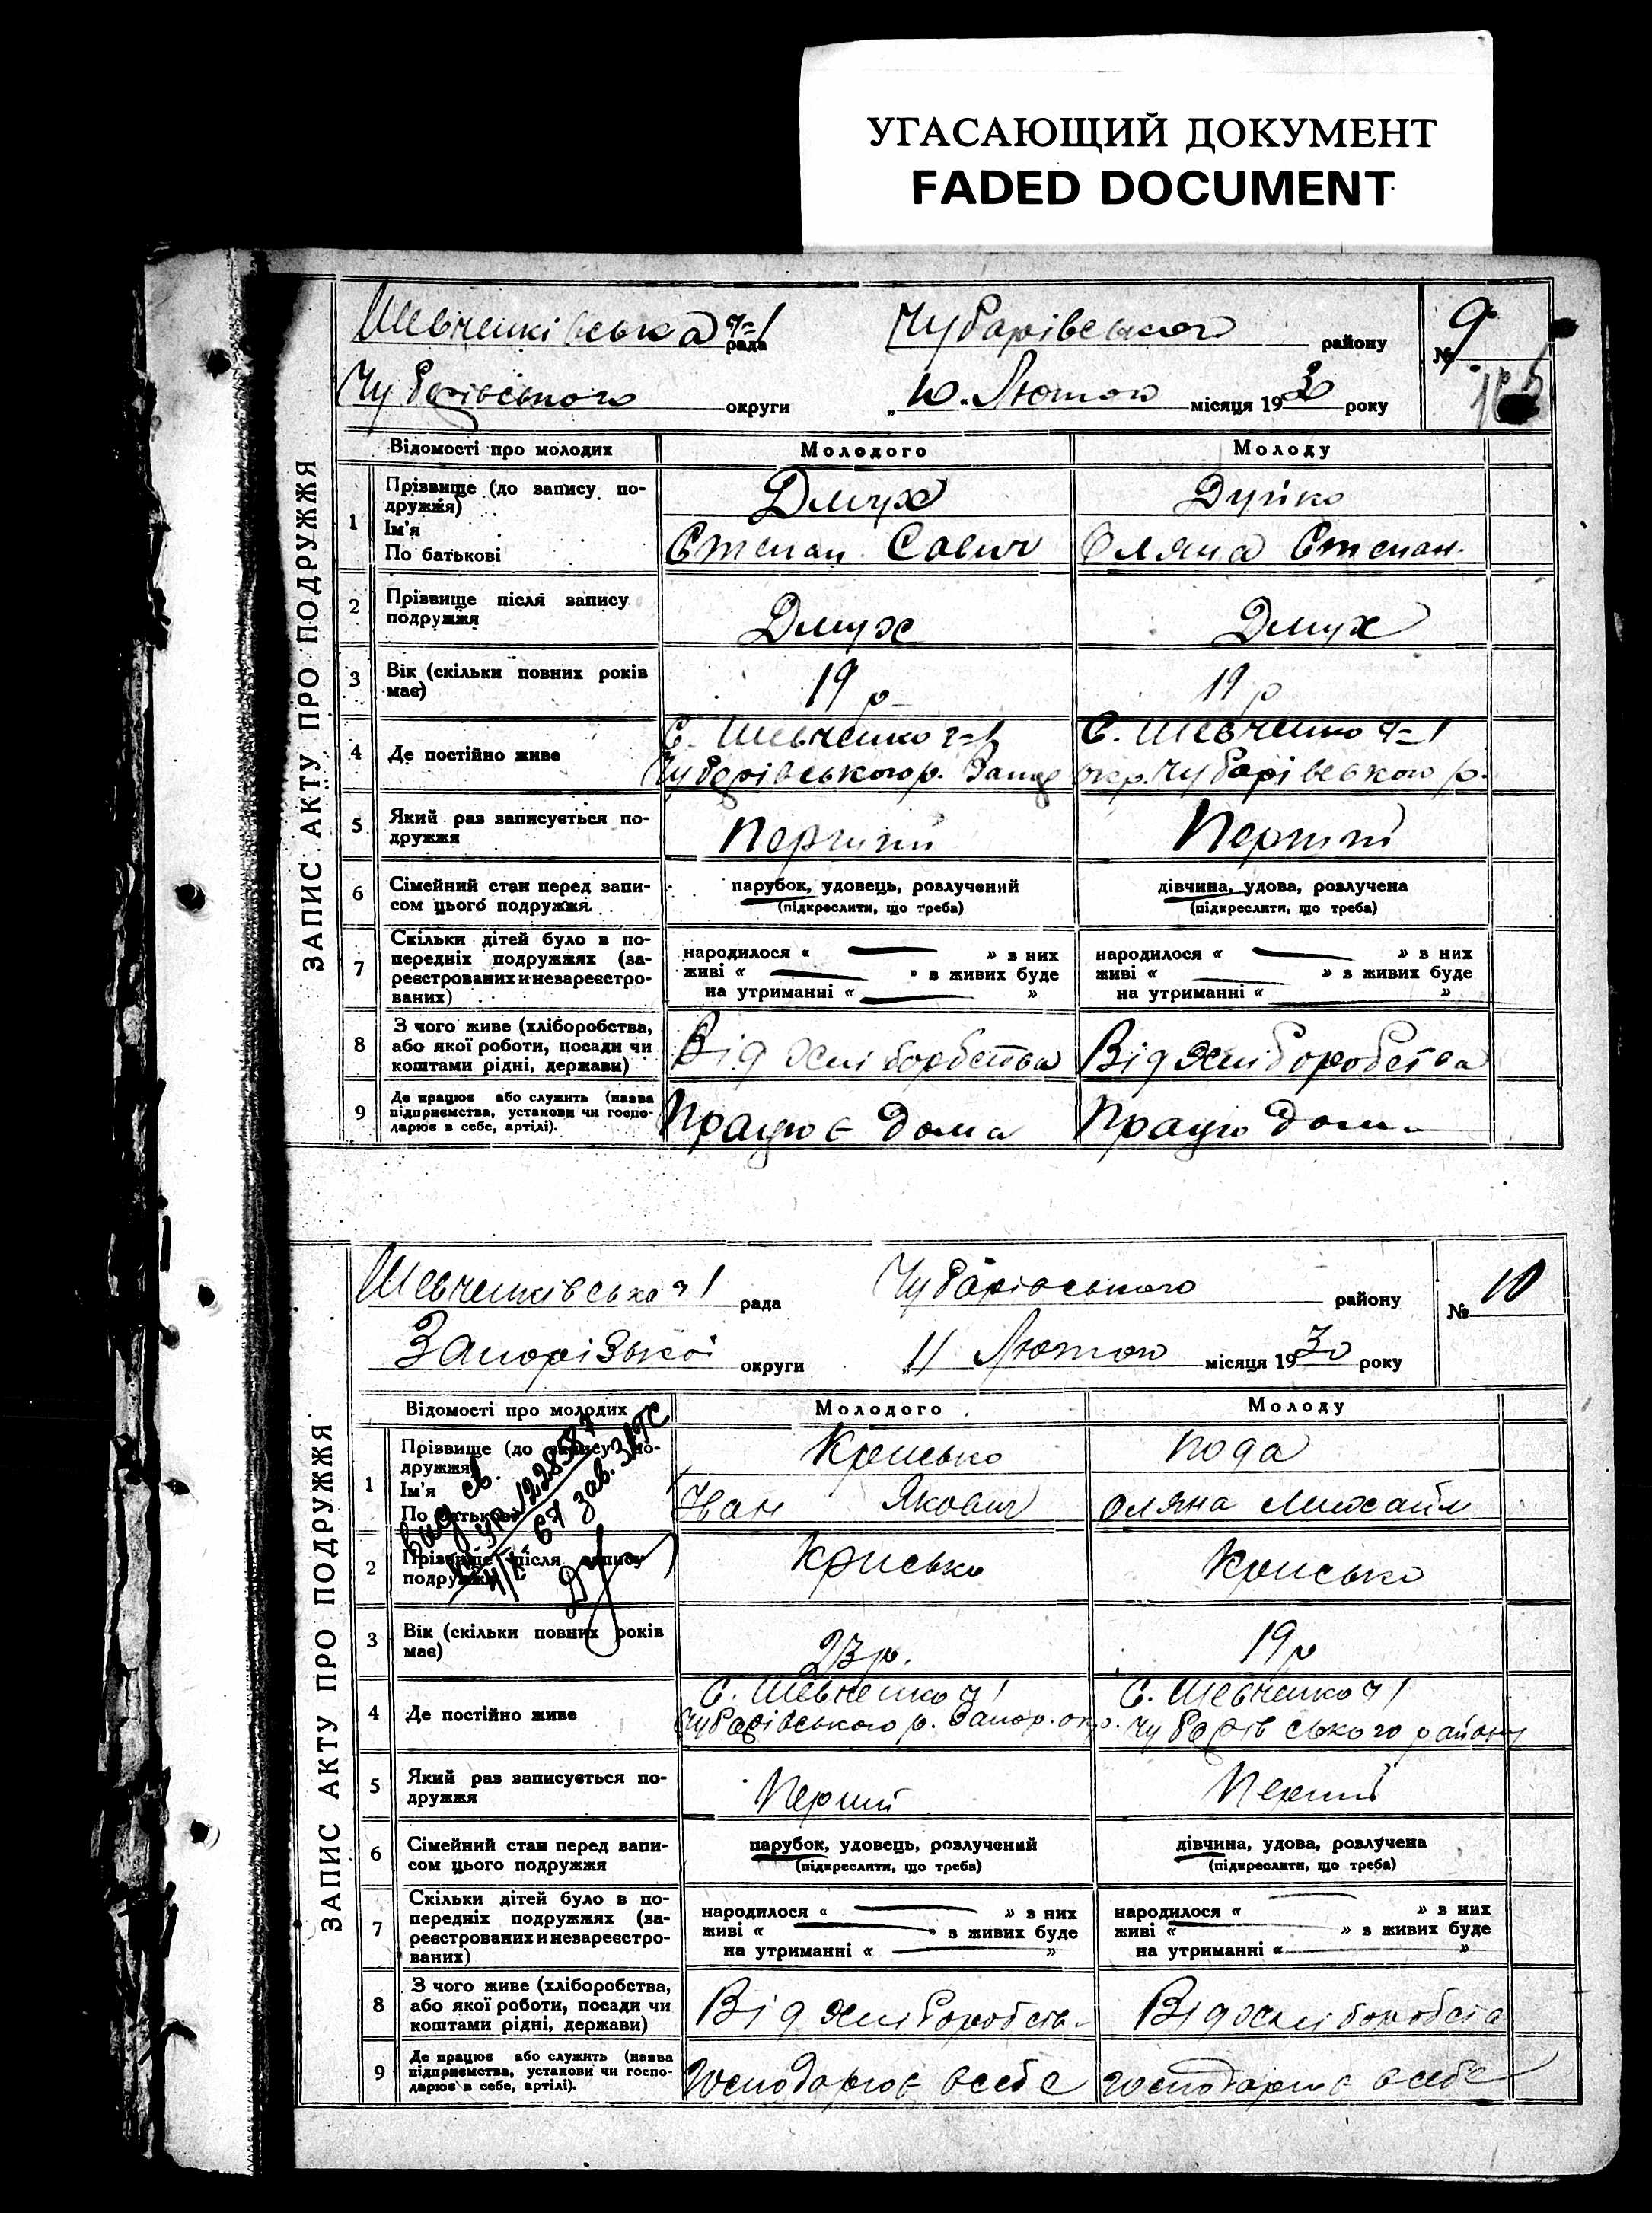 УГАСАЮЩИЙ ДОКУМЕНТ
FADED DOCUMENT
ЗАПИС АКТУ ПРО ПОДРУЖЖЯ
Шевченківська ч=1 рада Чубарівського району № 9
Чубарівського округи „10" Лютого місяця 1930 року
Відомості про молодих Молодого Молоду
1 Прізвище (до запису по-
дружжя) Дмух Дуйко
Ім'я
По батькові Степан Савич Оляна Степан.
2 Прізвище після запису
подружжя Дмух Дмух
3 Вік (скільки повних років
має) 19 р 19 р
4 Де постійно живе С. Шевченко ч=1 С. Шевченко ч=1
Чубарівського р. Запор окр. Чубарівського р.
5 Який раз записується по-
дружжя Перший Перший
6 Сімейний стан перед запи-
сом цього подружжя парубок, удовець, розлучений дівчина, удова, розлучена
(підкреслити, що треба) (підкреслити, що треба)
7 Скільки дітей було в по-
передніх подружжях (за-
реєстрованих и незареєстро-
ваних)
народилося « — » з них народилося « — » з них
живі « — » з живих буде живі « — » з живих буде
на утриманні « — » на утриманні « — »
8 З чого живе (хліборобства,
або якої роботи, посади чи
коштами рідні, держави) Від хліборбства Від хліборобства
9 Де працює або служить (назва
підприємства, установи чи госпо-
дарює в себе, артілі). Працює дома Працю дома
ЗАПИС АКТУ ПРО ПОДРУЖЖЯ
Шевченківська ч 1 рада Чубарівського району № 10
Запорізької округи „11 Лютого місяця 1930 року
Відомості про молодих Молодого Молоду
1 Прізвище (до запису по-
дружжя) Крисько Пода
Ім'я
По батькові Іван Якович Оляна Михайл
2 Прізвище після запису
подружжя Крисько Крисько
3 Вік (скільки повних років
має) 23 р. 19 р
4 Де постійно живе С. Шевченко ч 1 С. Шевченко ч 1
Чубарівського р. Запор. окр. Чубарівського району
5 Який раз записується по-
дружжя Перший Перший
6 Сімейний стан перед запи-
сом цього подружжя парубок, удовець, розлучений дівчина, удова, розлучена
(підкреслити, що треба) (підкреслити, що треба)
7 Скільки дітей було в по-
передніх подружжях (за-
реєстрованих и незареєстро-
ваних)
народилося « — » з них народилося « — » з них
живі « — » з живих буде живі « — » з живих буде
на утриманні « — » на утриманні « — »
8 З чого живе (хліборобства,
або якої роботи, посади чи
коштами рідні, держави) Від хліборобств Від хліборобста
9 Де працює або служить (назва
підприємства, установи чи госпо-
дарює в себе, артілі). Господарює всебе господарює всебе
67 зав. ЗАГС